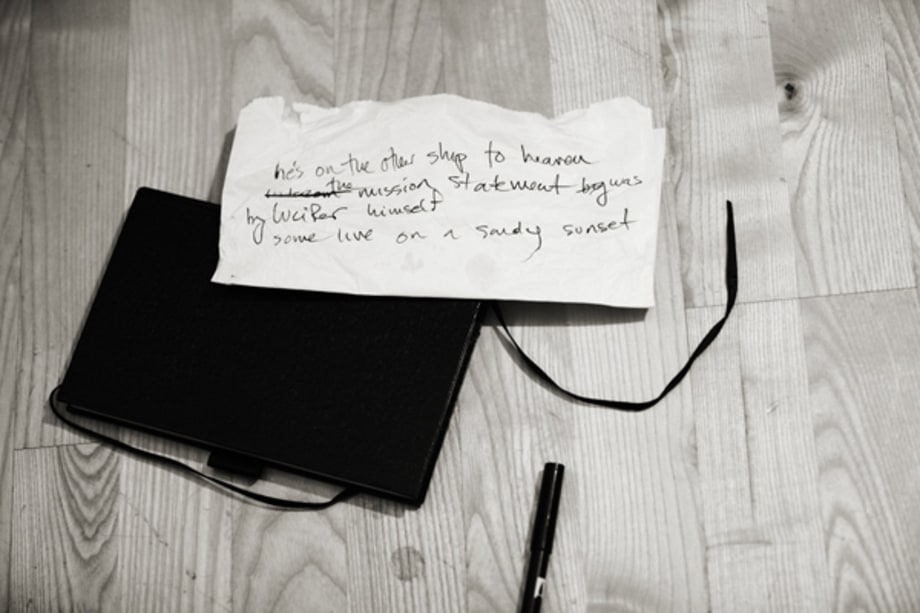 he's on the other ship to heaven
the mission statement was
by Lucifer himself
some live on a sandy sunset